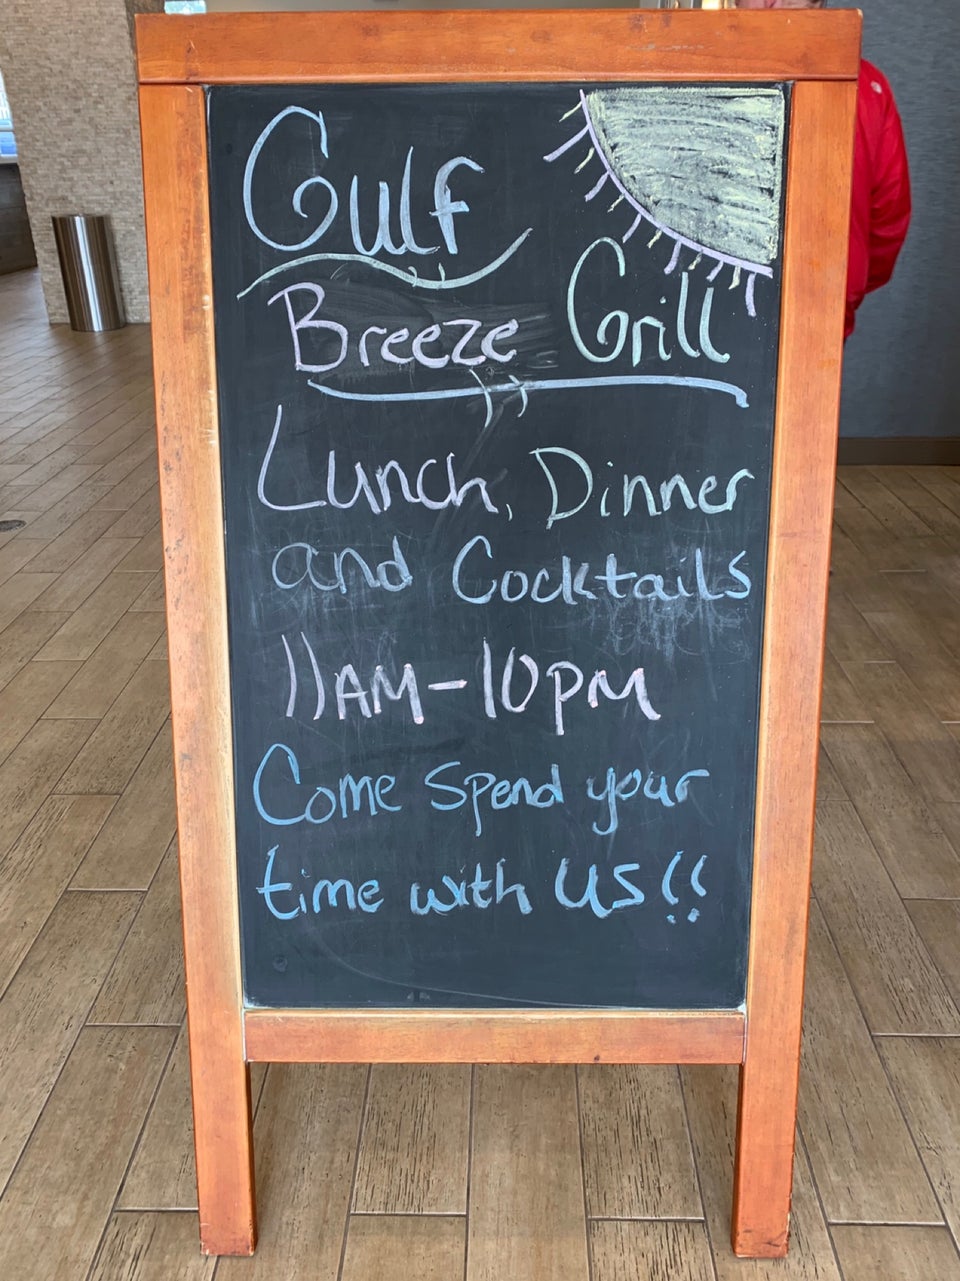 Gulf
Breeze Grill
Lunch, Dinner
and Cocktails
11AM-10PM
Come spend your
time with us!!